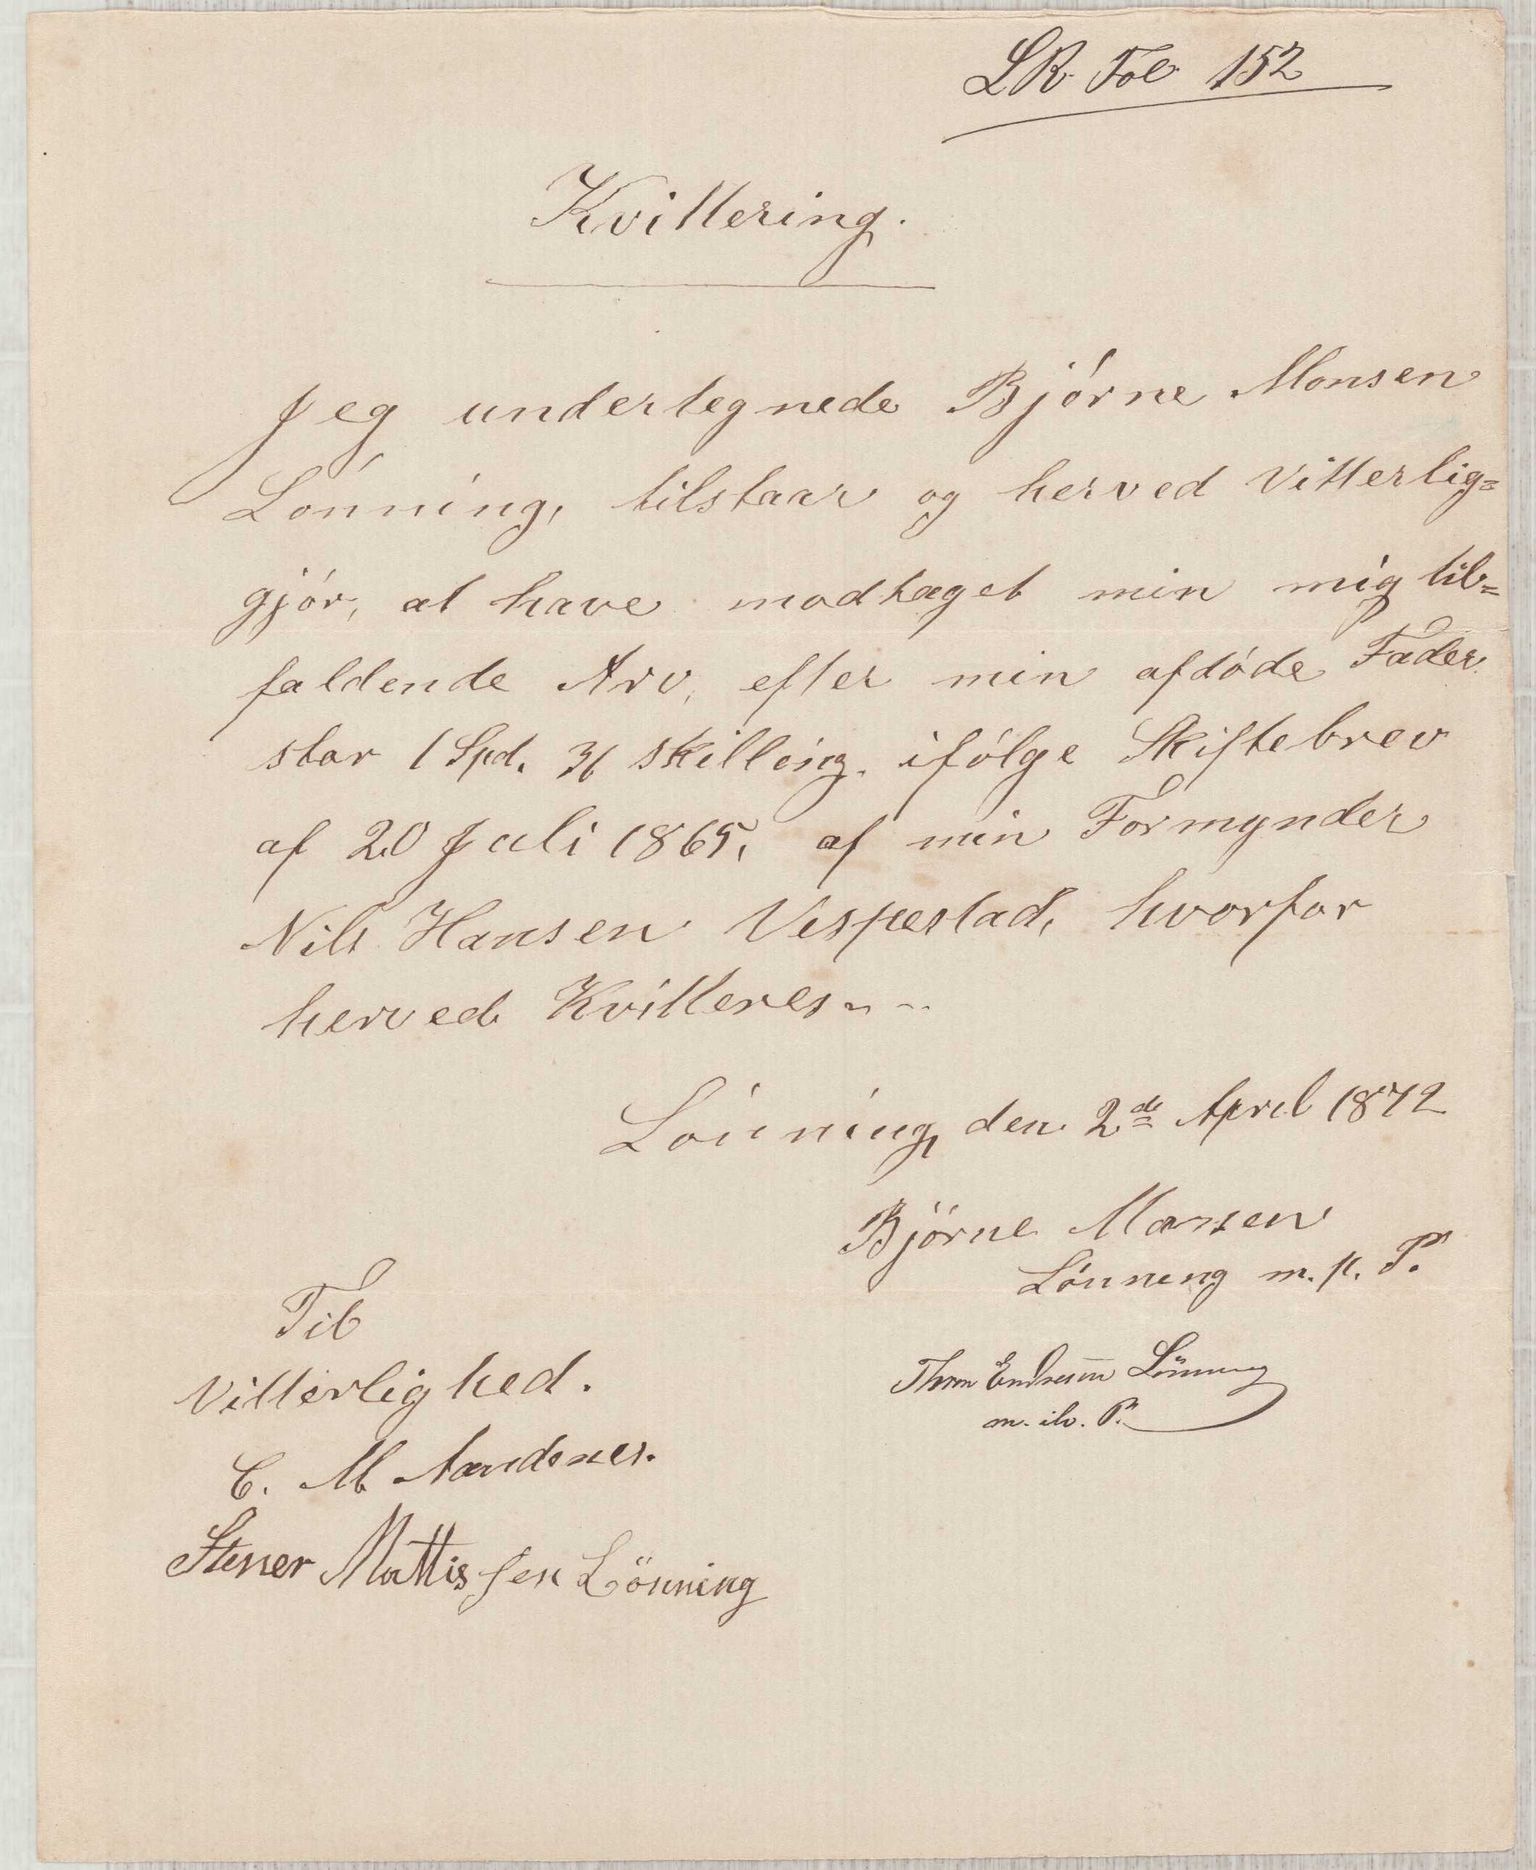 LR Fol 152
Kvittering.
Jeg undertegnede Bjórne Monsen
Lónning, tilstaar og herved Vitterlig=
gjór, at have modtaget min mig til=
faldende Arv, efter min afdóde Fader
stor 1 Spd. 36 skilling. ifólge Skiftebrev
af 20 Juli 1865, af min Formynder
Nils Hansen Vespestad, hvorfor
herved Kvitteres
Lónning den 2de April 1872
Björne Monsen
Lónneng m. p. P.
Thron Endresen Lönning
m. ih. P.
Til
Vitterlighed.
C. M.
Stener Mattissen Lönning